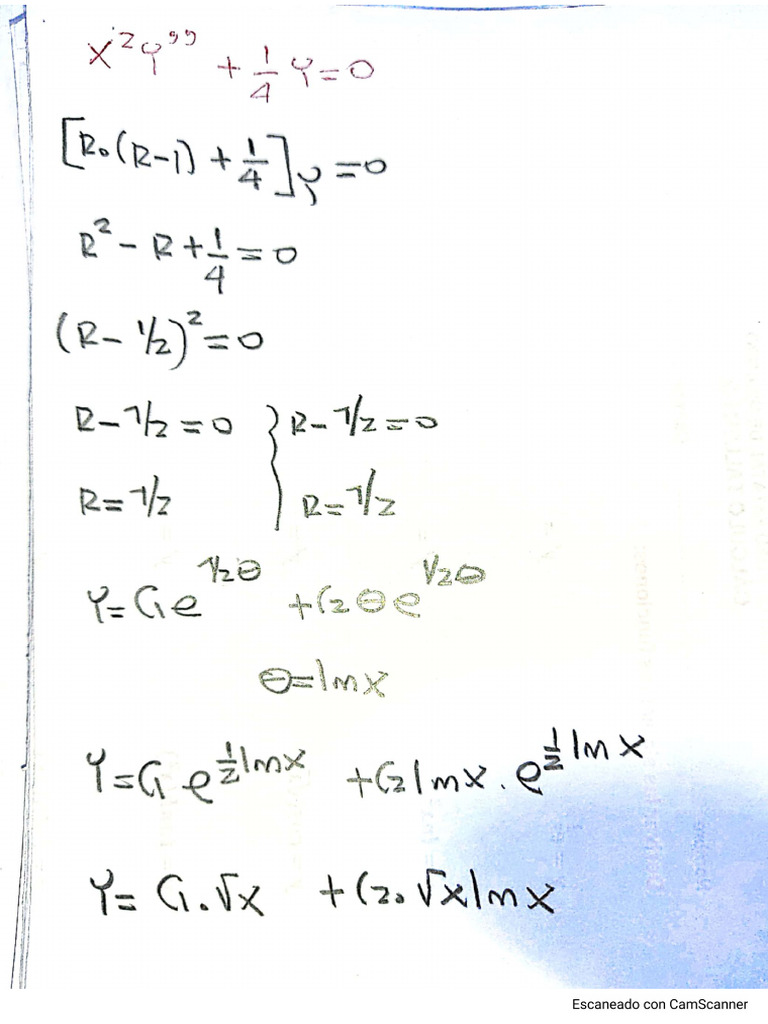 x²y'' + 1/4 y = 0
[R.(R-1) + 1/4]y = 0
R² - R + 1/4 = 0
(R - 1/2)² = 0
R - 1/2 = 0 } R - 1/2 = 0
R = 1/2 } R = 1/2
y = C₁e^(1/2θ) + C₂θe^(1/2θ)
θ = lnx
y = C₁e^(1/2 lnx) + C₂lnx.e^(1/2 lnx)
y = C₁.√x + C₂.√x lnx
Escaneado con CamScanner